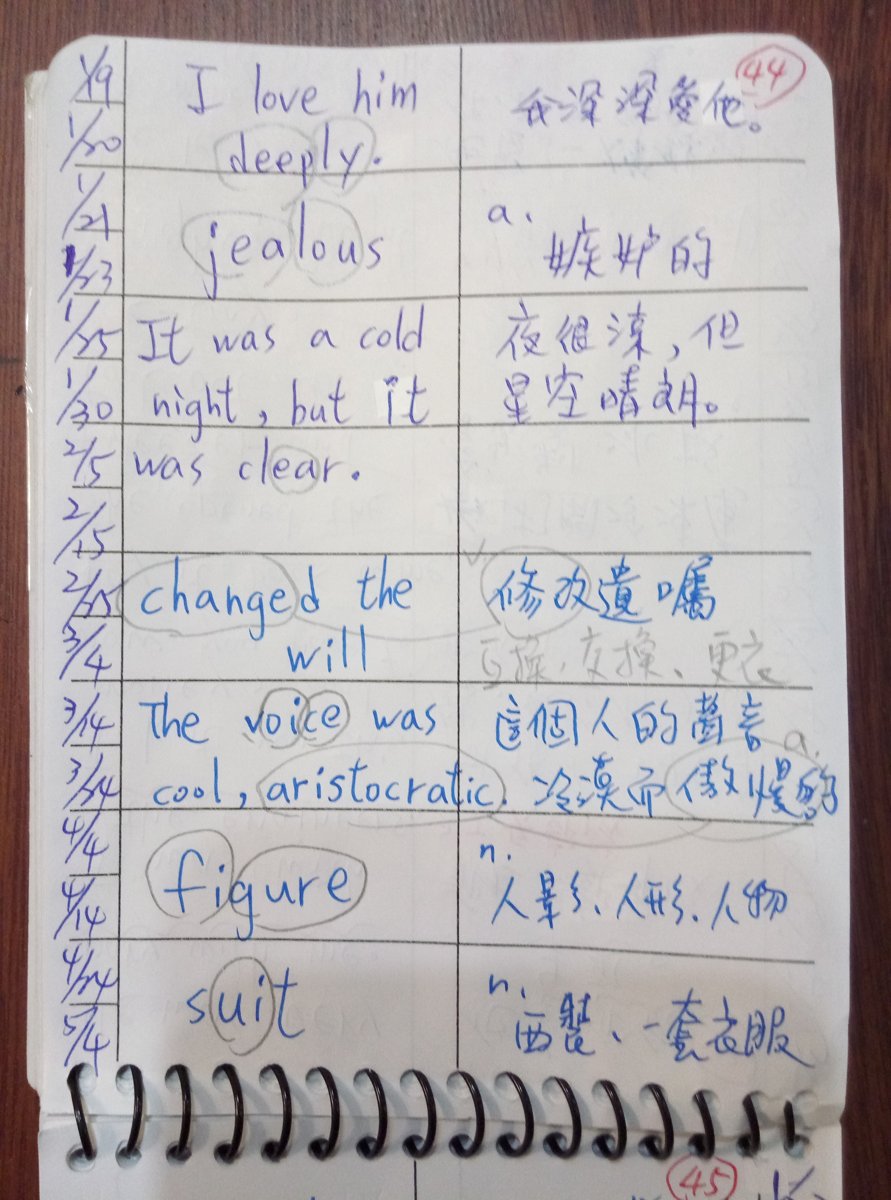 44
1/19
I love him
我深深愛他。
1/20
deeply.
1/21
jealous
a.
嫉妒的
1/23
1/25
It was a cold
夜很涼,但
1/30
night, but it
星空晴朗。
2/5
was clear.
2/15
2/25
changed the
修改遺囑
3/4
will
互換、交換、更衣
3/14
The voice was
這個人的聲音
a.
3/24
cool, aristocratic.
冷漠而傲慢的
4/4
figure
n.
4/14
人影、人形、人物
4/24
suit
n.
5/4
西裝、一套衣服
45